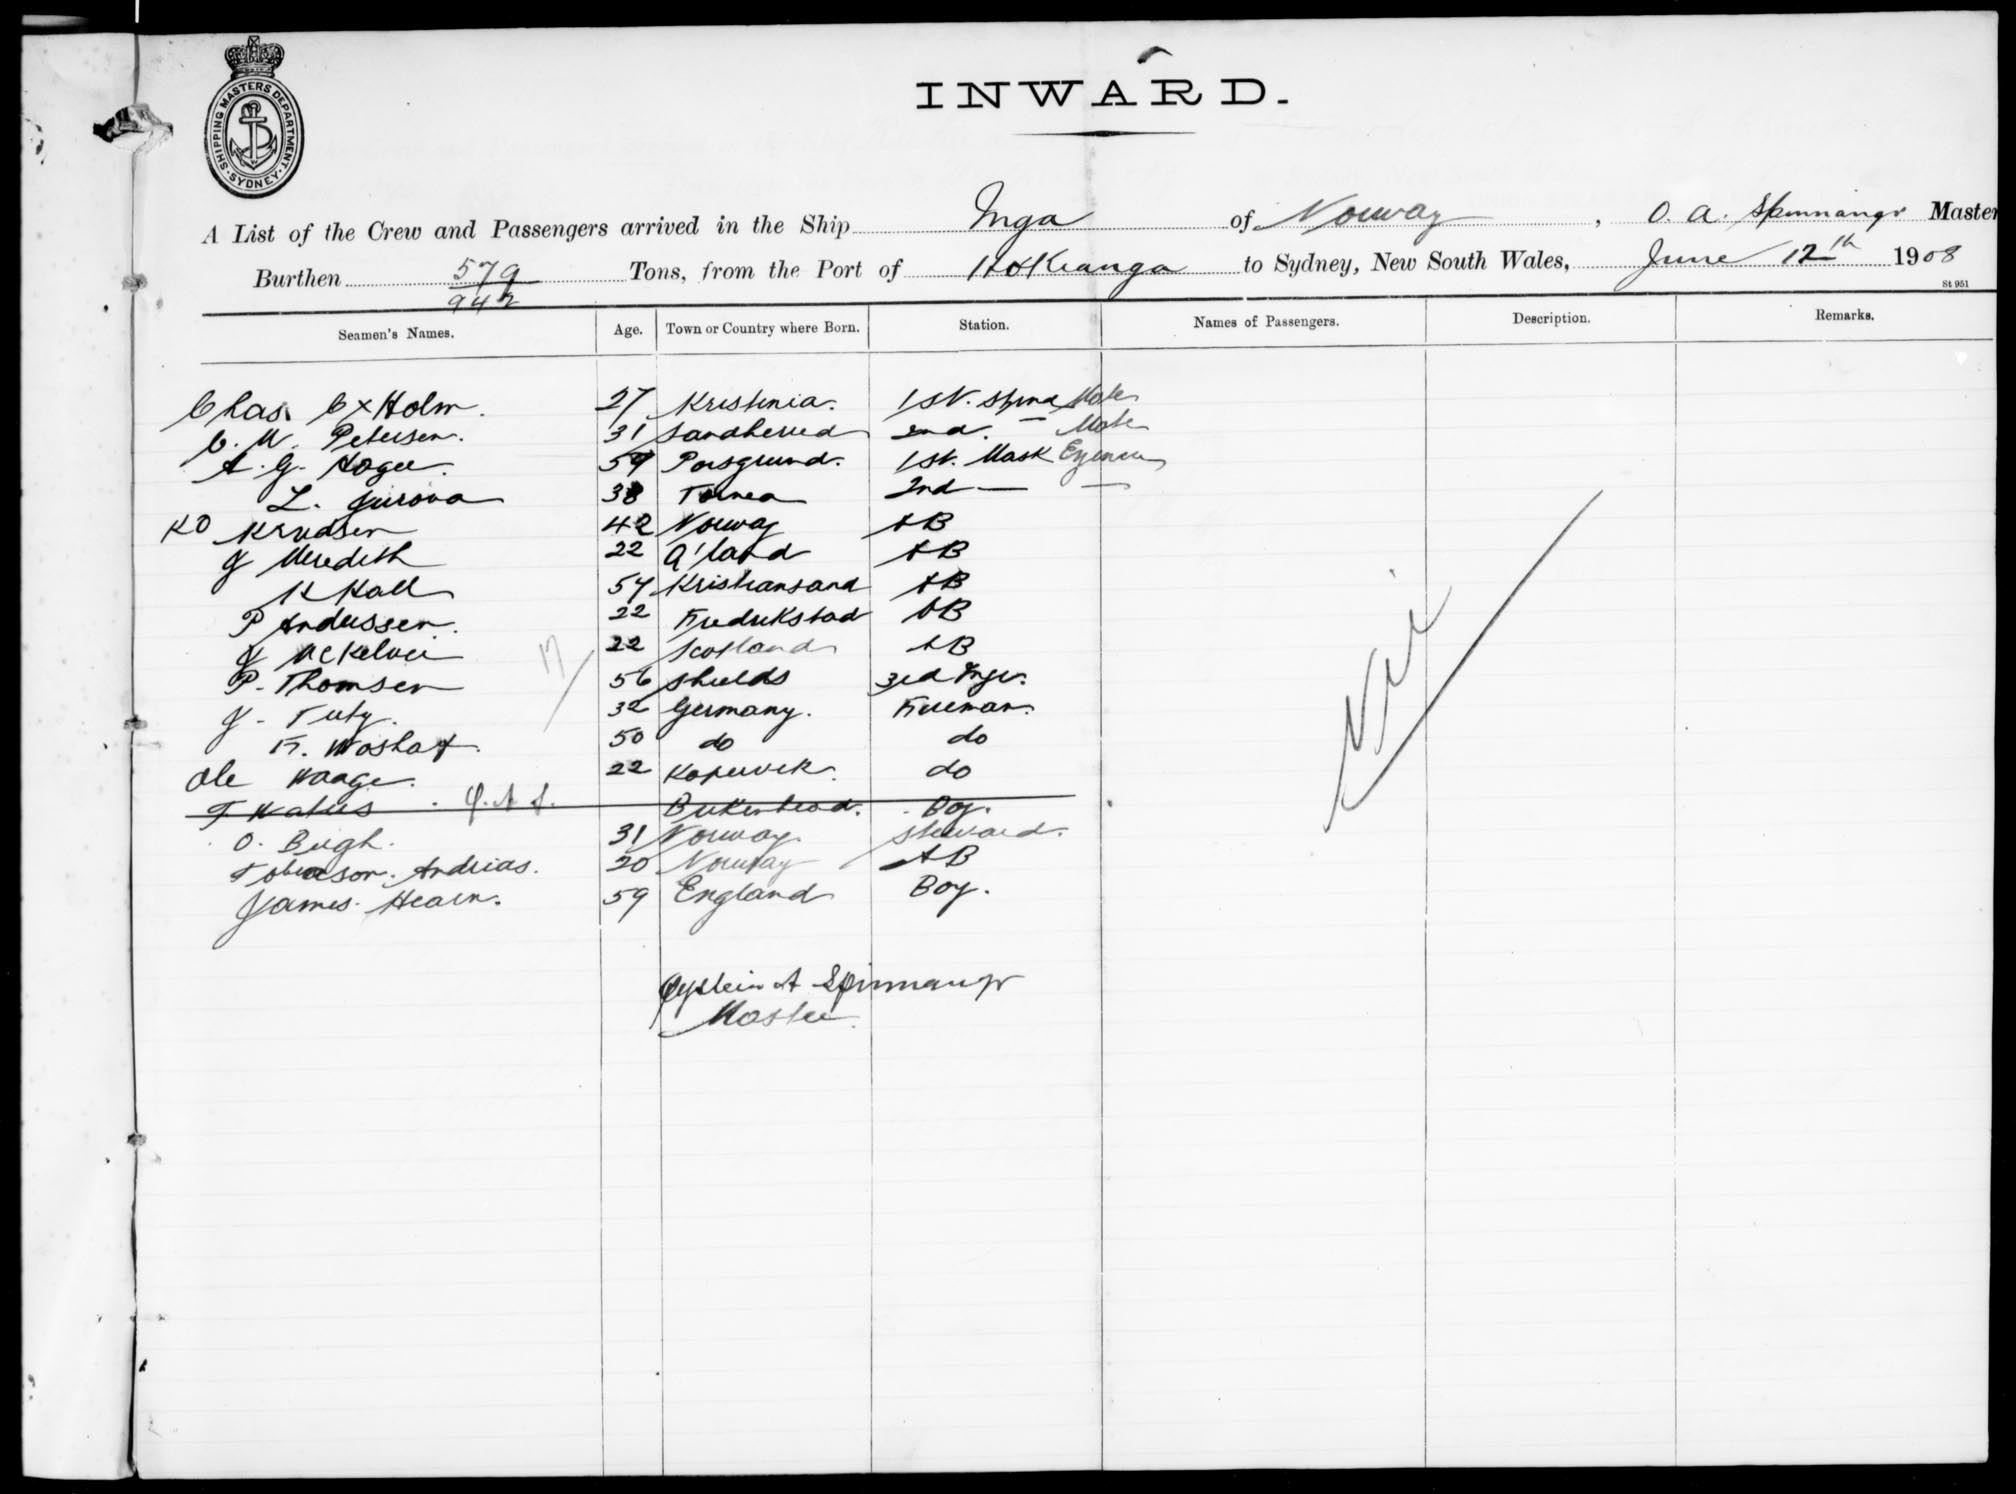 SHIPPING MASTERS DEPARTMENT. SYDNEY.
INWARD.
A List of the Crew and Passengers arrived in the Ship Inga of Norway, O. A. Spinnangr Master
Burthen 579 Tons, from the Port of Hokianga to Sydney, New South Wales, June 12th 1908
942
St 951
Seamen's Names. Age. Town or Country where Born. Station. Names of Passengers. Description. Remarks.
Chas. C Holm. 27 Kristinia. 1st. Mate
C. M. Petersen. 31 Sandherred 2nd. — Mate
A. G. 59 Porsgrund. 1st. Mask
L. 38 Tornea 2nd — —
KO Knudsen 42 Norway AB
J Meredith 22 A'land AB
K Kall 54 Kristiansand AB
P Anderssen. 22 Fredrikstad AB
J McKelvie 22 Scotland AB
P. Thomsen 56 Shields 3rd Engr.
J. 32 Germany. Fireman.
17
50 do do
Ole Waage. 22 Kopervik. do
T Waters Birkenhead. Boy.
O. Bergh. 31 Norway. Steward.
Andrias. 20 Norway AB
James Hearn. 59 England Boy.
Nil
Oystein A Spinnangr
Master.